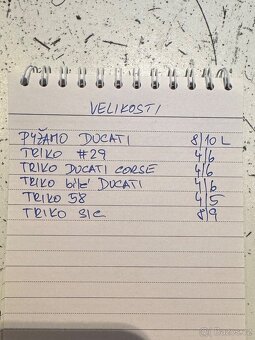 VELIKOSTI
PYŽAMO DUCATI 8/10 L
TRIKO #29 4/6
TRIKO DUCATI CORSE 4/6
TRIKO bílé DUCATI 4/6
TRIKO 58 4/5
TRIKO SIC 8/9